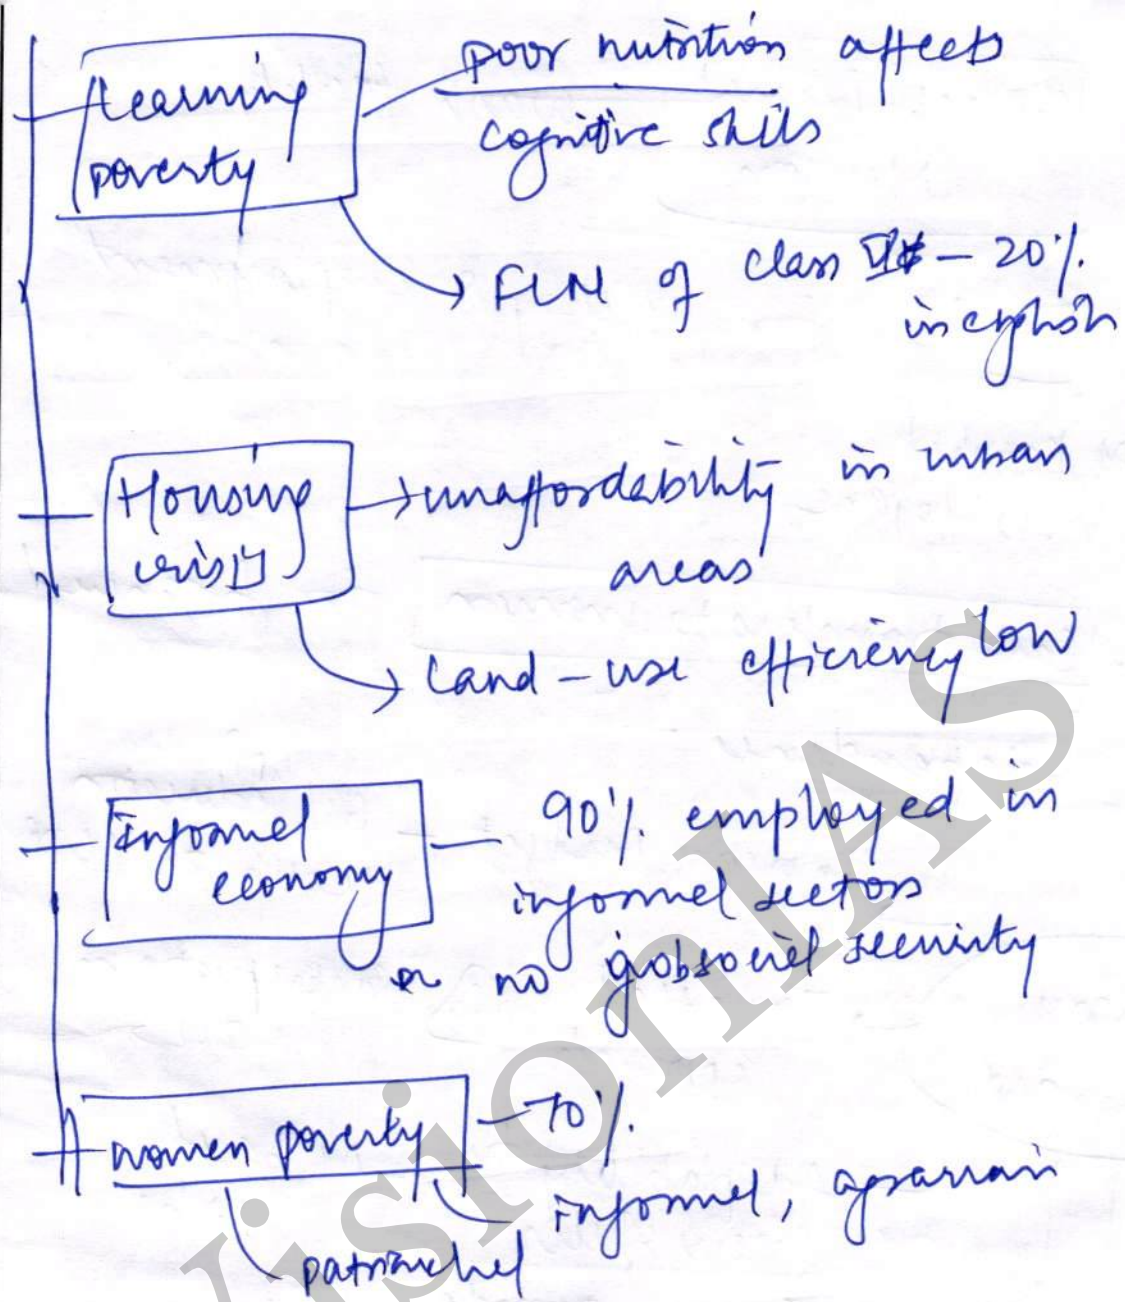 Learning poverty
poor nutrition affects
cognitive skills
→ FLN of class - 20%
in english
Housing crisis
→ unaffordability in urban
areas
→ Land-use efficiency low
Informal economy
- 90% employed in
informal sectors
no job social security
women poverty
- 70%
informal, agrarian
patriarchal
VisionIAS